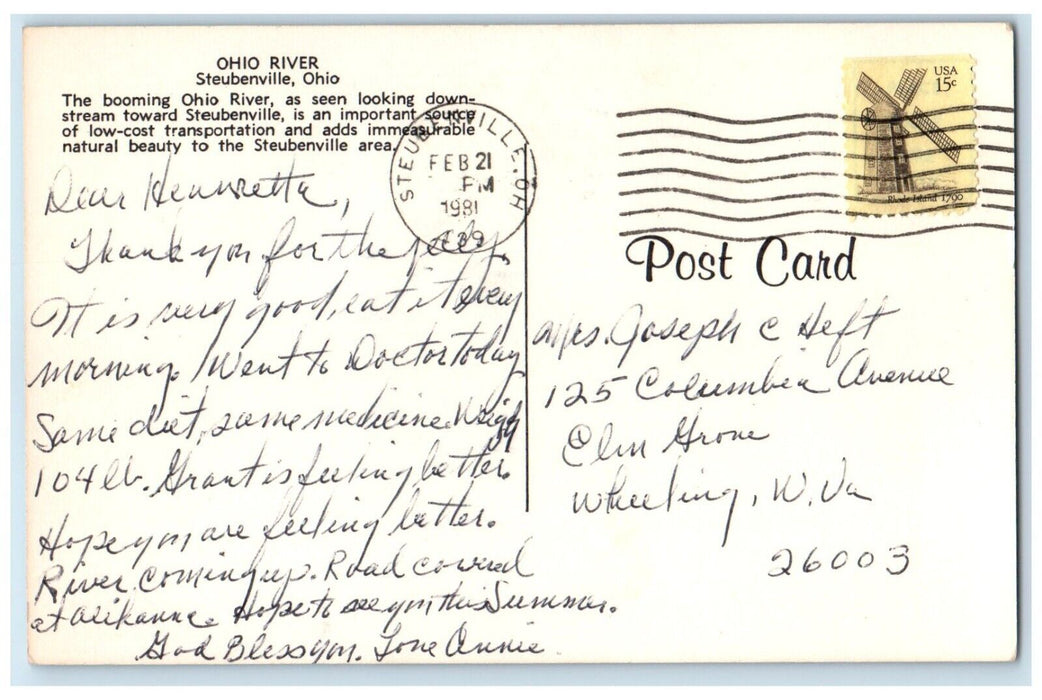 OHIO RIVER
Steubenville, Ohio
The booming Ohio River, as seen looking down-
stream toward Steubenville, is an important source
of low-cost transportation and adds immeasurable
natural beauty to the Steubenville area.
STEUBENVILLE, OH
FEB 21
PM
1981
439
USA
15c
Rhode Island 1790
Post Card
Dear Henrietta,
Thank you for the jelly.
It is very good, eat it every
morning. Went to Doctor today
Same diet, same medicine. Weigh
104 lb. Grant is feeling better.
Hope you are feeling better.
River coming up. Road covered
at Alikanna. Hope to see you this Summer.
God Bless you. Love Annie
Mrs. Joseph C Heft
125 Columbia Avenue
Elm Grove
Wheeling, W. Va
26003